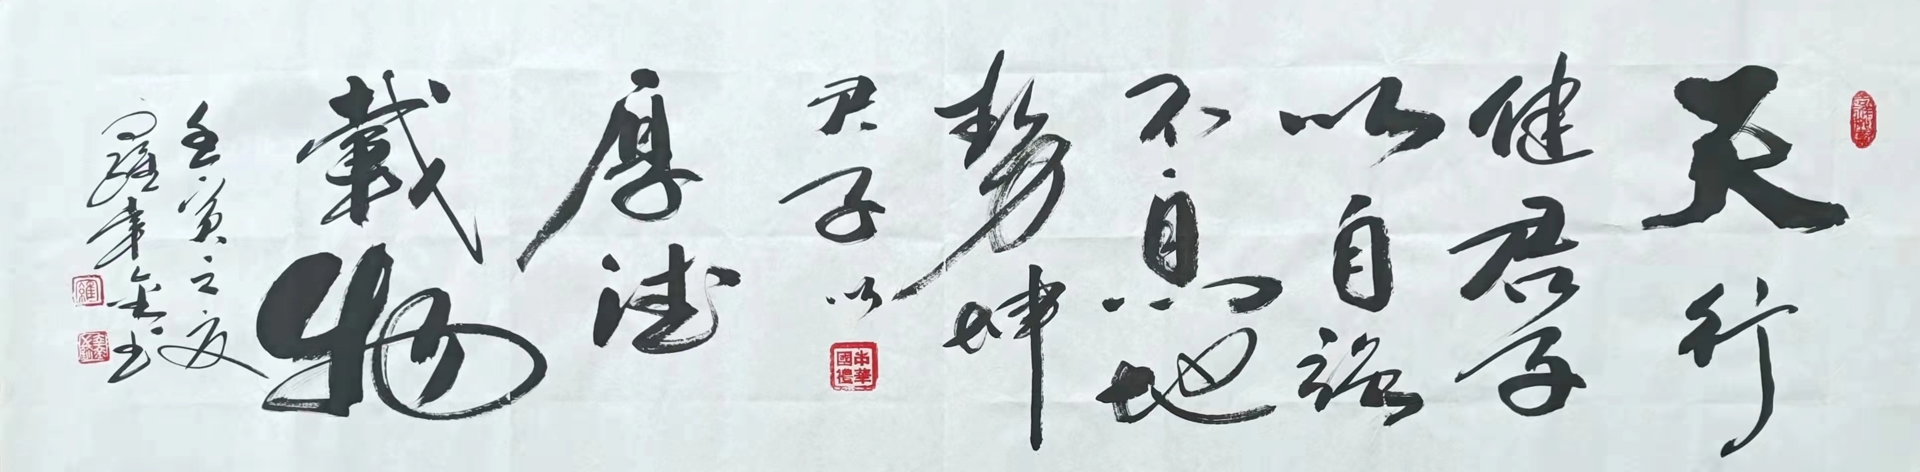 天行
健君子
以自强
不息地
势坤
君子以
厚德
載物
壬寅之夏
中華
國禮